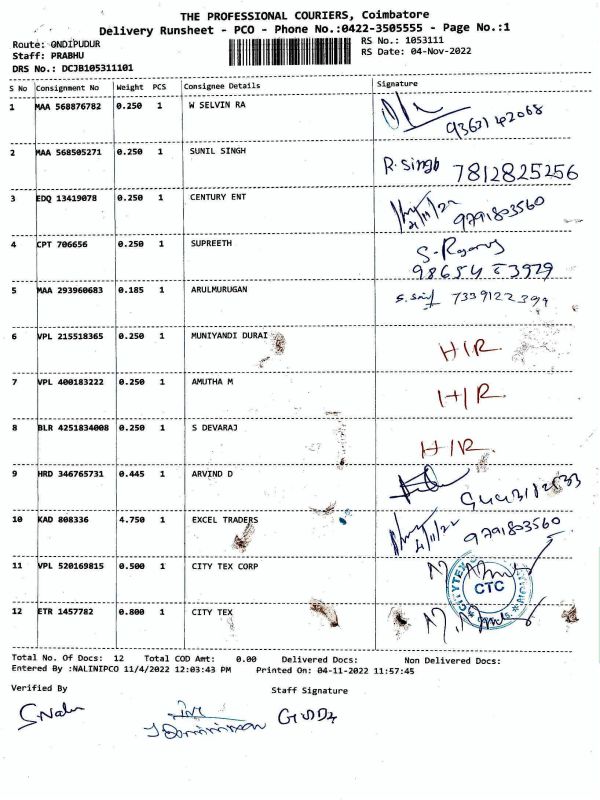 THE PROFESSIONAL COURIERS, Coimbatore
Delivery Runsheet - PCO - Phone No.:0422-3505555 - Page No.:1
Route: ONDIPUDUR RS No.: 1053111
Staff: PRABHU RS Date: 04-Nov-2022
DRS No.: DCJB105311101
S No Consignment No Weight PCS Consignee Details Signature
1 MAA 568876782 0.250 1 W SELVIN RA
2 MAA 568505271 0.250 1 SUNIL SINGH R. Singh 7812825256
3 EDQ 13419078 0.250 1 CENTURY ENT 9791803560
4 CPT 706656 0.250 1 SUPREETH
5 MAA 293960683 0.185 1 ARULMURUGAN
6 VPL 215518365 0.250 1 MUNIYANDI DURAI H/R
7 VPL 400183222 0.250 1 AMUTHA M H/R
8 BLR 4251834008 0.250 1 S DEVARAJ H/R
9 HRD 346765731 0.445 1 ARVIND D
10 KAD 808336 4.750 1 EXCEL TRADERS 4/11/22 9791803560
11 VPL 520169815 0.500 1 CITY TEX CORP
CTC
12 ETR 1457782 0.800 1 CITY TEX
Total No. Of Docs: 12 Total COD Amt: 0.00 Delivered Docs: Non Delivered Docs:
Entered By :NALINIPCO 11/4/2022 12:03:43 PM Printed On: 04-11-2022 11:57:45
Verified By Staff Signature